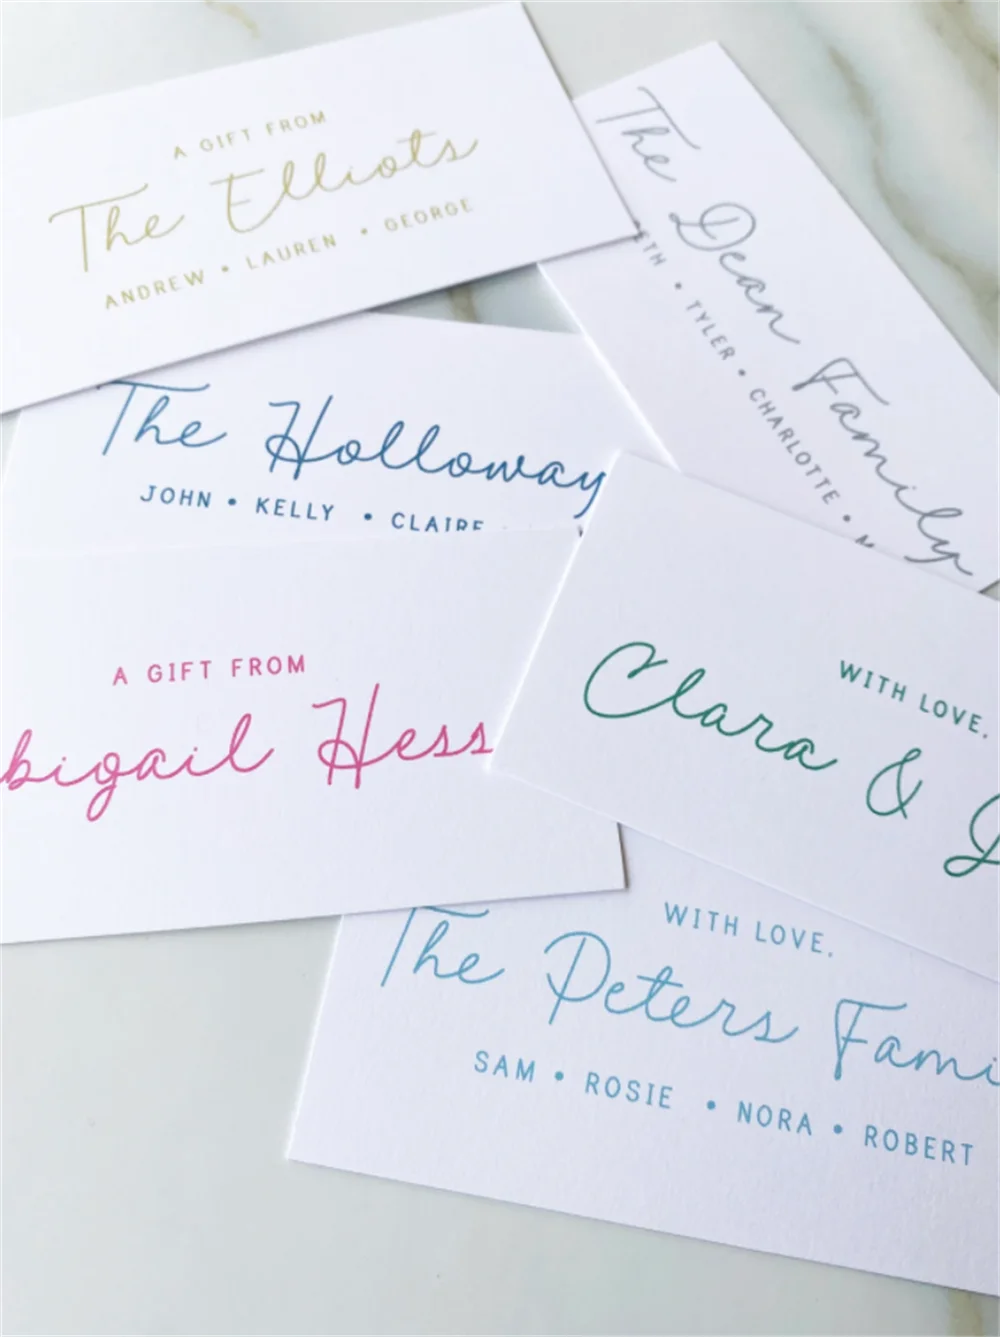 A GIFT FROM
The Elliots
ANDREW • LAUREN • GEORGE
The Dean Family
• TYLER • CHARLOTTE •
The Holloway
JOHN • KELLY • CLAIRE
A GIFT FROM
bigail Hess
WITH LOVE,
Clara &
WITH LOVE,
The Peters Fami
SAM • ROSIE • NORA • ROBERT